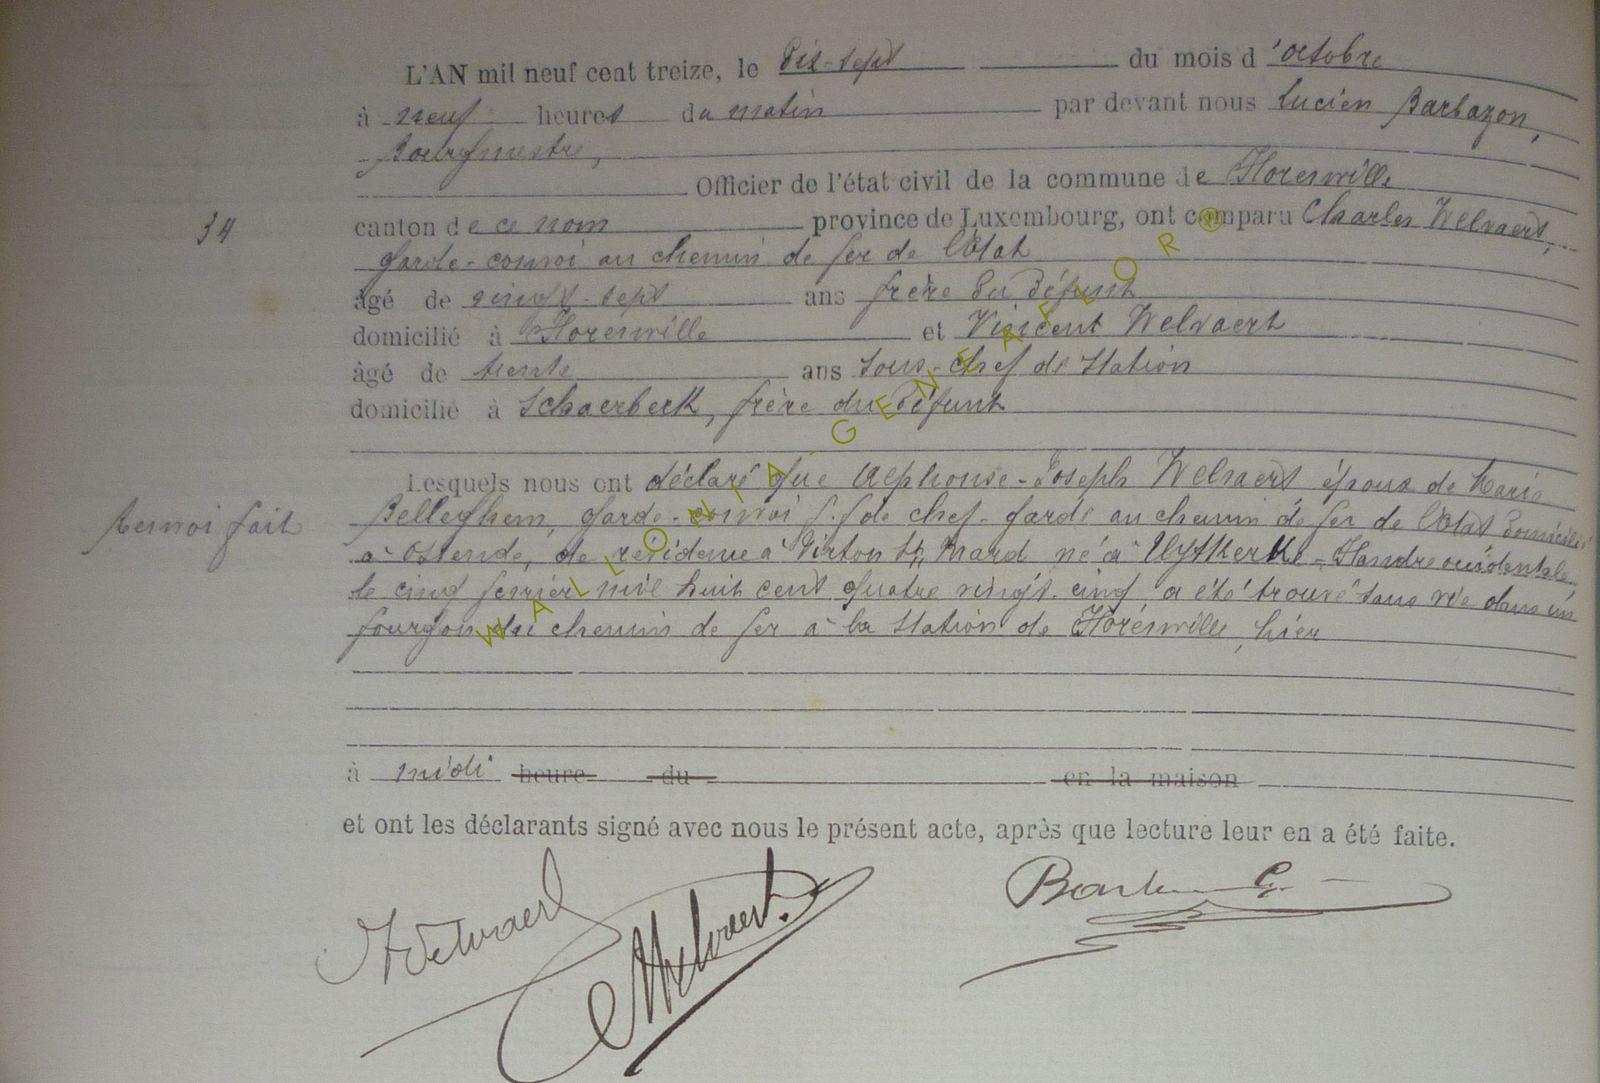 L'AN mil neuf cent treize, le Dix-sept du mois d'octobre
à neuf heures du matin par devant nous Lucien Barbazon,
Bourgmestre,
Officier de l'état civil de la commune de Florenville
34
canton de ce nom province de Luxembourg, ont comparu Charles Welvaert,
garde-convoi au chemin de fer de l'Etat
âgé de vingt-sept ans frère du défunt
domicilié à Florenville et Vincent Welvaert
âgé de trente ans sous-chef de station
domicilié à Schaerbeek, frère du défunt
Lesquels nous ont déclaré que Alphonse-Joseph Welvaert époux de Marie
Renvoi fait
Belleghem, garde-convoi f.f. de chef-garde au chemin de fer de l'Etat domicilié
à Ostende, de résidence à Virton St Mard né à Uytkerke - Flandre occidentale,
le cinq février mil huit cent quatre vingt-cinq a été trouvé sans vie dans un
fourgon du chemin de fer à la station de Florenville, hier
à midi heure du en la maison
et ont les déclarants signé avec nous le présent acte, après que lecture leur en a été faite.
Welvaert
Welvaert.
WALLONIA-GENEAFLOR®